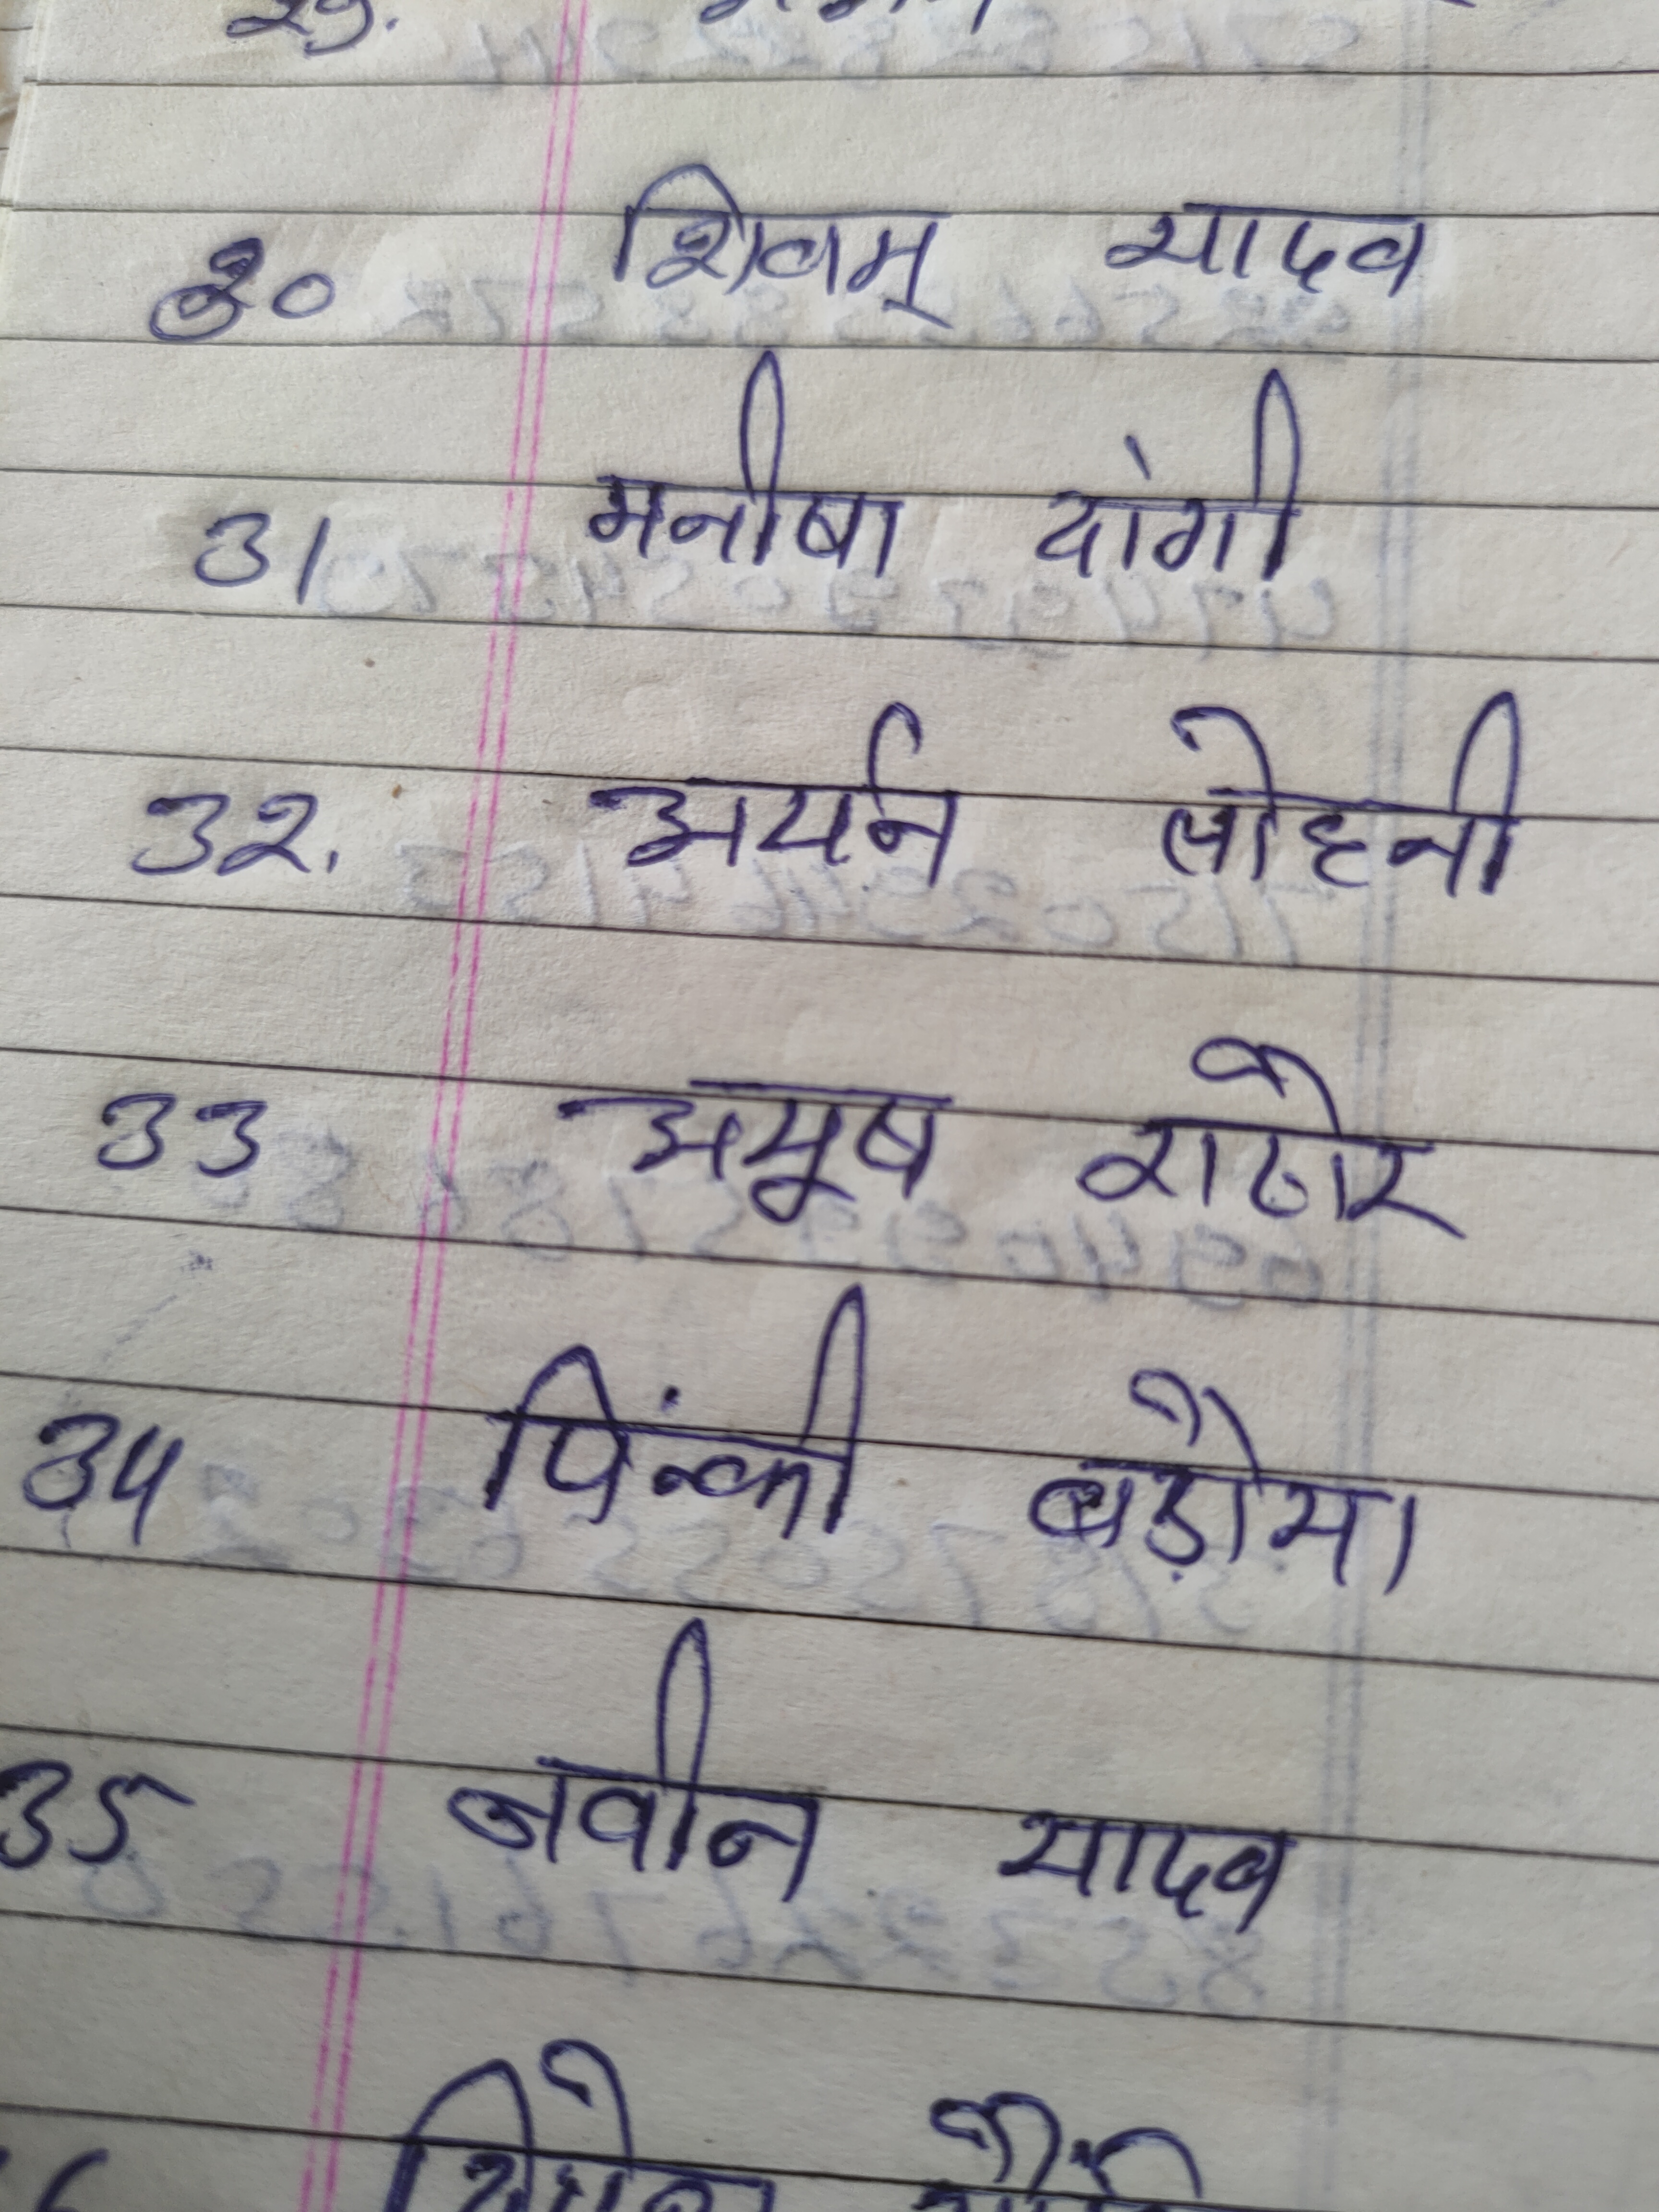 29.
30 शिवम् यादव
31 मनीषा दांगी
32. अर्यन लोहनी
33 अमूष राठौर
34 पिंन्की बड़ोमा
35 नवीन यादव